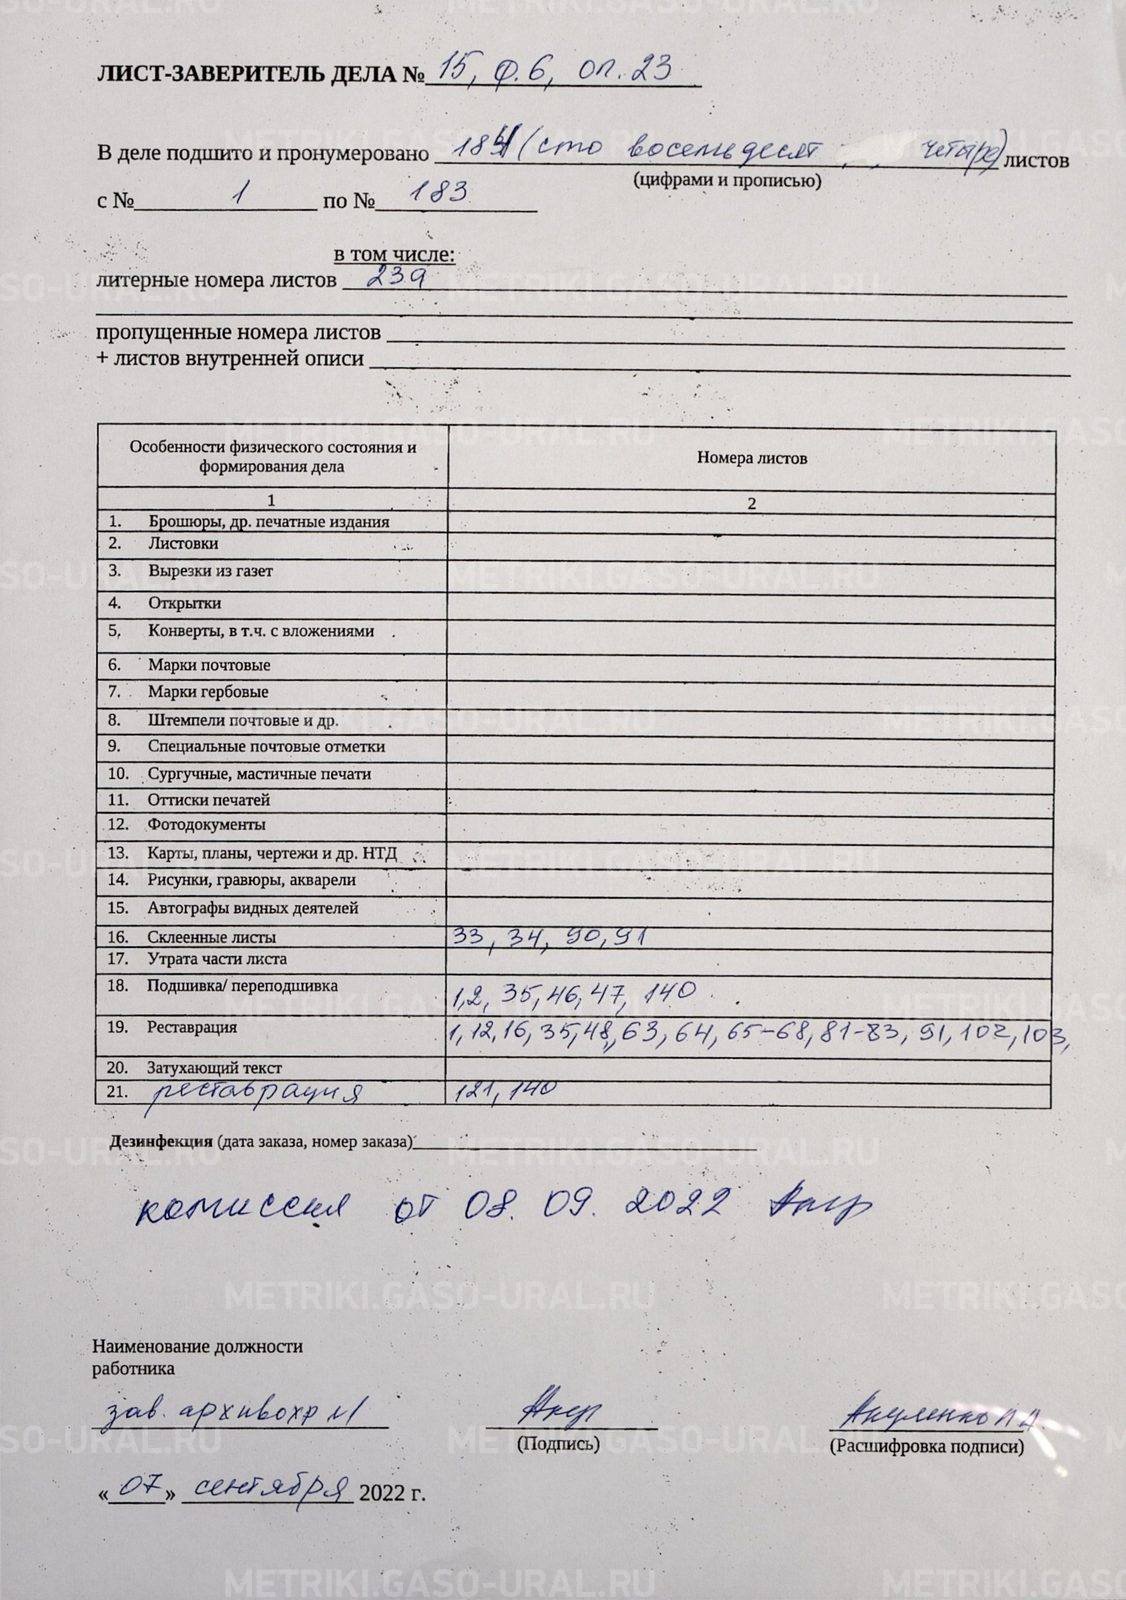 ЛИСТ-ЗАВЕРИТЕЛЬ ДЕЛА № 15, ф.6, оп.23
В деле подшито и пронумеровано 184 (сто восемьдесят четыре) листов
(цифрами и прописью)
с № 1 по № 183
в том числе:
литерные номера листов 23а
пропущенные номера листов
+ листов внутренней описи
Особенности физического состояния и формирования дела
Номера листов
1
2
1. Брошюры, др. печатные издания
2. Листовки
3. Вырезки из газет
4. Открытки
5. Конверты, в т.ч. с вложениями
6. Марки почтовые
7. Марки гербовые
8. Штемпели почтовые и др.
9. Специальные почтовые отметки
10. Сургучные, мастичные печати
11. Оттиски печатей
12. Фотодокументы
13. Карты, планы, чертежи и др. НТД
14. Рисунки, гравюры, акварели
15. Автографы видных деятелей
16. Склеенные листы 33, 34, 90, 91
17. Утрата части листа
18. Подшивка/ переподшивка 1,2, 35, 46, 47, 140
19. Реставрация 1, 12, 16, 35, 48, 63, 64, 65-68, 81-83, 91, 102, 103,
20. Затухающий текст
21. реставрация 121, 140
Дезинфекция (дата заказа, номер заказа)
комиссия от 08. 09. 2022
Наименование должности
работника
зав. архивохр №1
(Подпись)
Акуленко
(Расшифровка подписи)
«07» сентября 2022 г.
METRIKI.GASO-URAL.RU